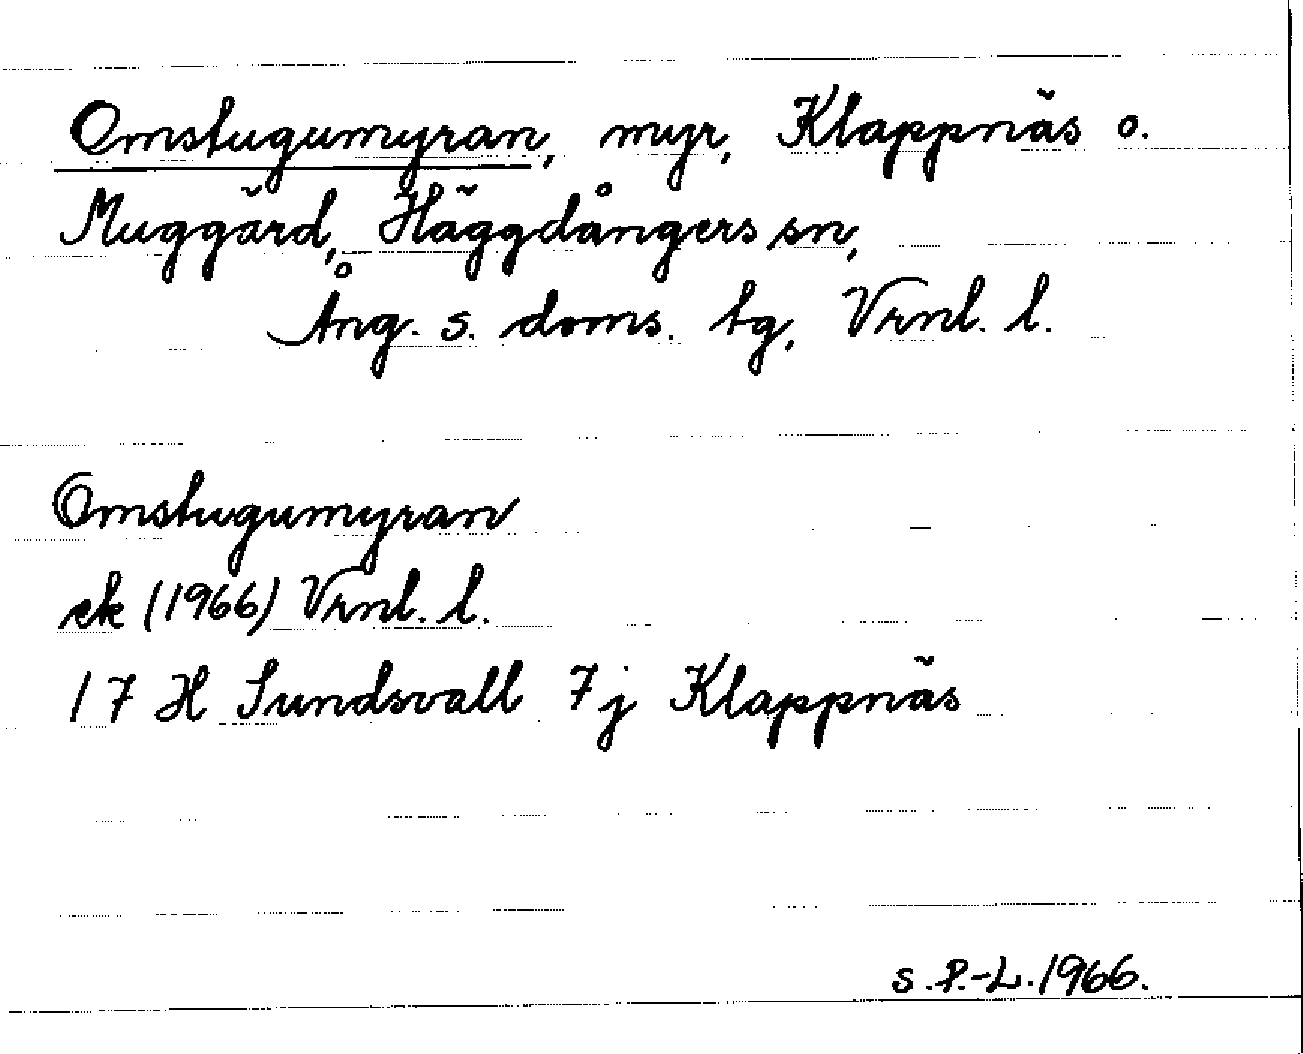 Omstugumyran, myr, Klappnäs o.
Muggärd, Häggdångers sn,
Ång. s. doms. tg, Vrnl. l.
Omstugumyran
ek (1966) Vrnl. l.
17 H Sundsvall 7j Klappnäs
s.P.-L.1966.